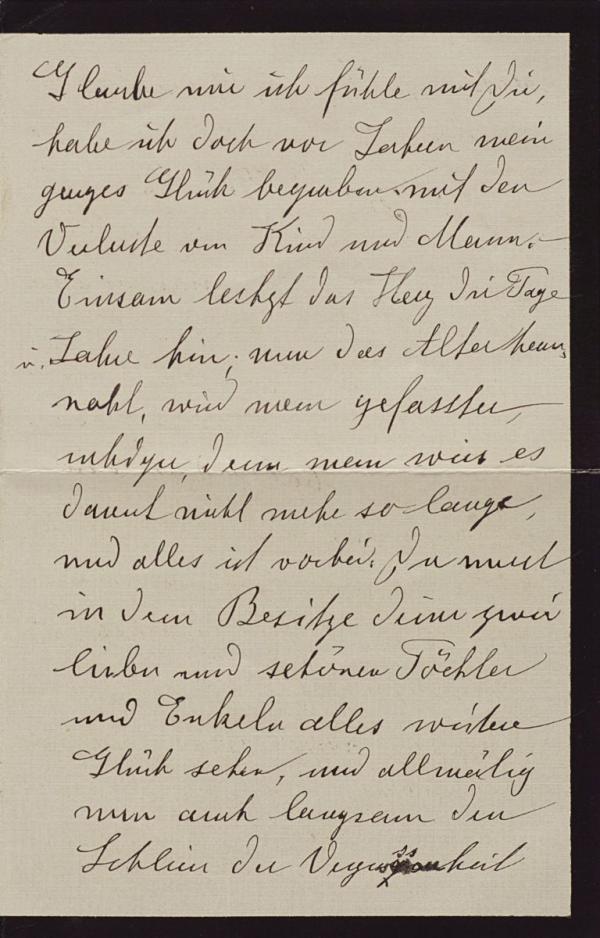 Glaube mir ich fühle mit Dir,
habe ich doch vor Jahren mein
ganzes Glück begraben mit den
Verluste von Kind und Mann.–
Einsam lebt das Herz die Tage
u. Jahre hin, nun das Alter heran
naht, wird man gefasster,
ruhiger, denn man weis es
dauert nicht mehr so lange,
und alles ist vorbei. Du must
in dem Besitze deiner zwei
lieben und schönen Töchter
und Enkeln alles weitere
Glück sehen, und allmälig
nun auch langsam den
Schleier der Vergessenheit